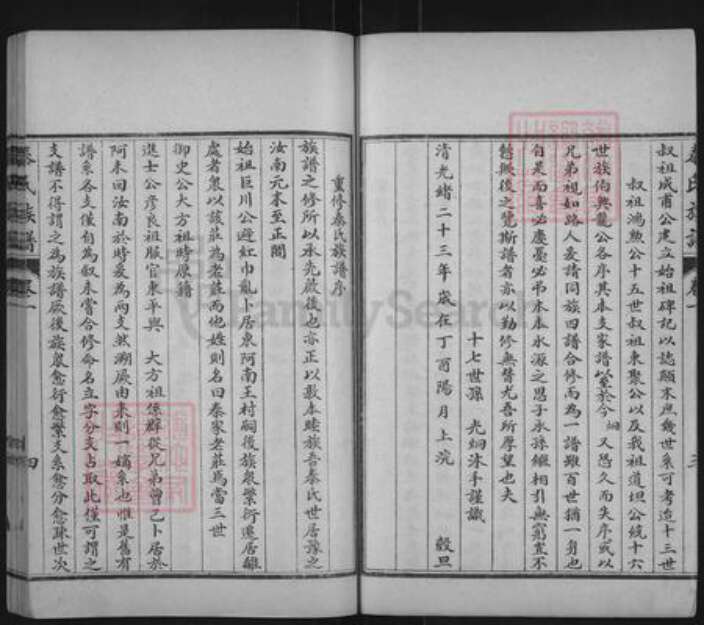 叔祖成甫公建立始祖碑記以誌顛末庶幾世系可考迨十三世
叔祖鴻勲公十五世叔祖東聚公以及我祖道坦公統十六
世族伯典龍公各序其本支家譜以至於今烱又恐久而失序或以
兄弟視如路人爰請同族四譜合修而為一譜雖百世猶一身也
自是而喜必慶憂必弔木本水源之思子永孫繼相引無窮豈不
懿歟後之覽斯譜者亦以勤修無替尤吾所厚望也夫
十七世孫 光烱沐手謹識
清光緒二十三年歲在丁酉陽月上浣 穀旦
重修秦氏族譜序
族譜之修所以承先啟後也亦正以敦本睦族吾秦氏世居豫之
汝南元末至正間
始祖巨川公避紅巾亂卜居東阿南王村嗣後族衆繁衍遷居離
處者衆以該莊為老莊而他姓則名曰秦家老莊焉當三世
御史公大方祖時原籍
進士公彥良祖服官東平與 大方祖係辭從兄弟曾已卜居於
阿未回汝南於時爰為兩支然溯厥由來則一嫡系也惟是舊有
譜系各支僅自為叙未嘗合修命名立字分支占取此僅可謂之
支譜不得謂之為族譜厥後族衆愈衍愈繁支系愈分愈疎世次
秦氏族譜 卷一
三
四
FamilySearch